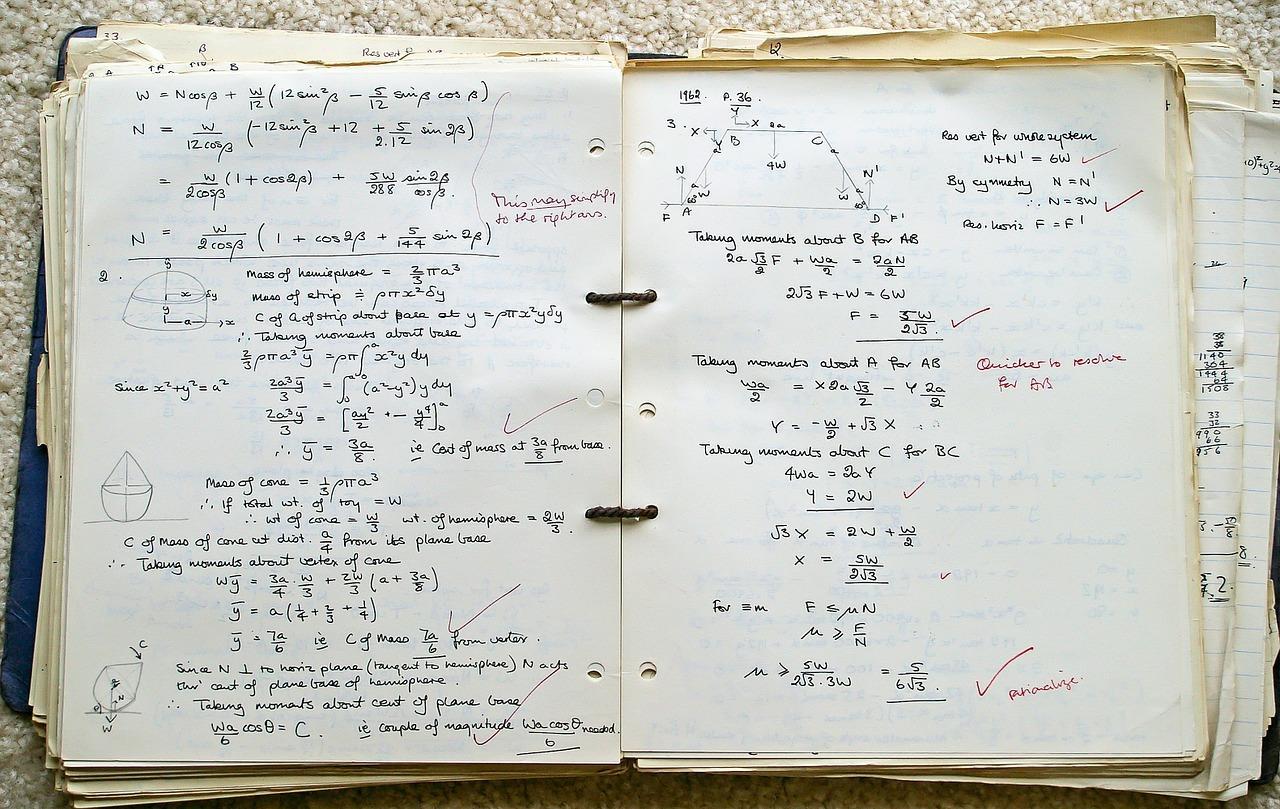 33
β
Res vert
W = Ncosβ + W/12 (12sin²β − 5/12 sinβ cosβ)
N = W/12cosβ (−12sin²β + 12 + 5/2.12 sin2β)
= W/2cosβ (1 + cos2β) + 5W/288 sin2β/cosβ.
This may simplify
to the right ans.
N = W/2cosβ (1 + cos2β + 5/144 sin2β)
2.
Mass of hemisphere = 2/3 πa³
y x δy
Mass of strip ≑ ρπx²δy
y a x
C of G of strip about base at y = ρπx²yδy
∴ Taking moments about base
2/3 ρπa³ȳ = ρπ∫₀ᵃ x²y dy
Since x²+y²=a² 2a³ȳ/3 = ∫₀ᵃ (a²−y²)y dy
2a³ȳ/3 = [ay²/2 + − y⁴/4]₀ᵃ
∴ ȳ = 3a/8 ie Cent of mass at 3a/8 from base.
Mass of cone = 1/3 ρπa³
∴ If total wt. of toy = W
∴ wt of cone = W/3 wt. of hemisphere = 2W/3.
C of Mass of cone at dist. a/4 from its plane base
∴ Taking moments about vertex of cone
Wȳ = 3a/4 . W/3 + 2W/3 (a + 3a/8)
ȳ = a(1/4 + 2/3 + 1/4)
ȳ = 7a/6 ie C of Mass 7a/6 from vertex.
C
N
θ
W
Since N ⊥ to horiz plane (tangent to hemisphere) N acts
thro' cent of plane base of hemisphere.
∴ Taking moments about cent of plane base
Wa/6 cosθ = C. ie couple of magnitude Wa cosθ/6 needed.
12
1962. P. 36.
3.
Y
X X 2a
B C
Y
a a
4W
N N'
W W
a a
60° 60°
F A D F'
Res vert for whole system
N+N' = 6W
By symmetry N = N'
∴ N = 3W
Res. horiz F = F'
Taking moments about B for AB
2a √3/2 F + Wa/2 = 2aN/2
2√3 F + W = 6W
F = 5W/2√3.
Taking moments about A for AB
Quicker to resolve
for AB
Wa/2 = X 2a √3/2 − Y 2a/2
Y = −W/2 + √3 X
Taking moments about C for BC
4Wa = 2aY
Y = 2W
√3 X = 2W + W/2
X = 5W/2√3
For ≡m F ≤ μN
μ ≥ F/N
μ ≥ 5W/2√3.3W = 5/6√3.
rationalize.
38
38
1140
304
1444
64
1508
33
32
990
66
956
8.
2.